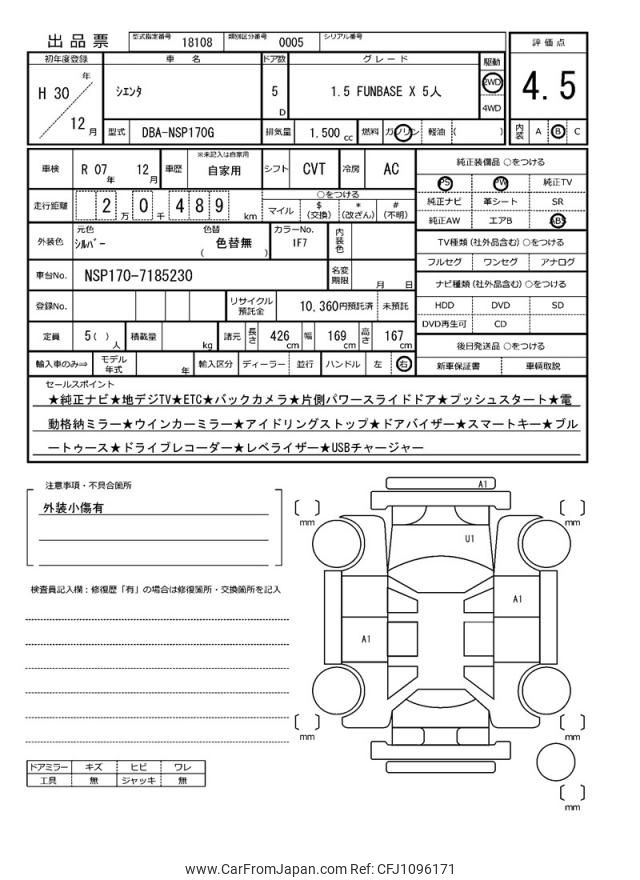 出品票 型式指定番号 18108 類別区分番号 0005 シリアル番号
評価点
4.5
内装 A B C
初年度登録 車名 ドア数 グレード 駆動
H 30 年 12 月
シエンタ 5 D 1.5 FUNBASE X 5人 2WD
4WD
型式 DBA-NSP170G 排気量 1.500 cc 燃料 ガソリン 軽油 ( )
車検 R 07 年 12 月 車歴 ※未記入は自家用 自家用 シフト CVT 冷房 AC
走行距離 2 万 0 千 4 8 9 km
○をつける
マイル $ (交換) * (改ざん) # (不明)
外装色 元色 シルバー 色替 ( 色替無 ) カラーNo. 1F7 内装色
車台No. NSP170-7185230 名変期限 月 日
登録No. リサイクル預託金 10,360円預託済 未預託
定員 5( ) 人 積載量 kg 諸元 長さ 426 cm 幅 169 cm 高さ 167 cm
輸入車のみ⇒ モデル年式 年 輸入区分 ディーラー 並行 ハンドル 左 右
純正装備品 ○をつける
PS PW 純正TV
純正ナビ 革シート SR
純正AW エアB ABS
TV種類 (社外品含む) ○をつける
フルセグ ワンセグ アナログ
ナビ種類 (社外品含む) ○をつける
HDD DVD SD
DVD再生可 CD
後日発送品 ○をつける
新車保証書 車輌取説
セールスポイント
★純正ナビ★地デジTV★ETC★バックカメラ★片側パワースライドドア★プッシュスタート★電
動格納ミラー★ウインカーミラー★アイドリングストップ★ドアバイザー★スマートキー★ブル
ートゥース★ドライブレコーダー★レベライザー★USBチャージャー
注意事項・不具合箇所
外装小傷有
検査員記入欄：修復歴「有」の場合は修復箇所・交換箇所を記入
ドアミラー キズ ヒビ ワレ
工具 無 ジャッキ 無
A1
U1
A1
A1
mm
mm
mm
mm
mm
www.CarFromJapan.com Ref: CFJ1096171